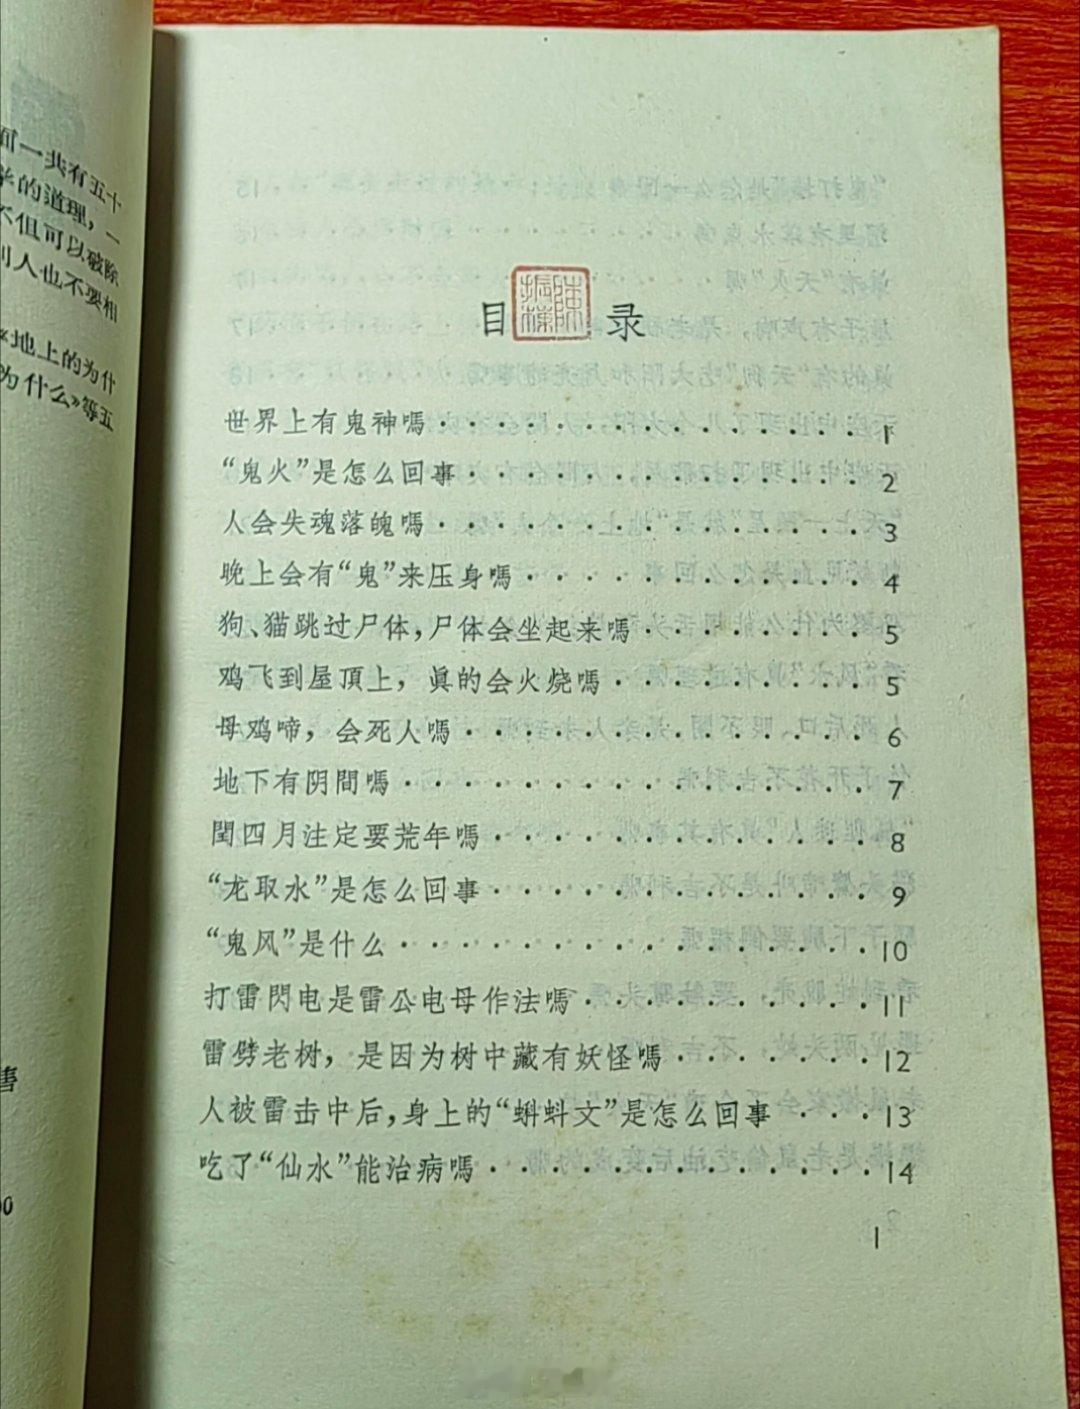 面一共有五十
学的道理，一
不但可以破除
别人也不要相
《地上的为什
为什么》等五
书
00
目录
陈振栋
世界上有鬼神嗎 1
“鬼火”是怎么回事 2
人会失魂落魄嗎 3
晚上会有“鬼”来压身嗎 4
狗、猫跳过尸体，尸体会坐起来嗎 5
鸡飞到屋頂上，眞的会火烧嗎 5
母鸡啼，会死人嗎 6
地下有阴間嗎 7
閏四月注定要荒年嗎 8
“龙取水”是怎么回事 9
“鬼风”是什么 10
打雷閃电是雷公电母作法嗎 11
雷劈老树，是因为树中藏有妖怪嗎 12
人被雷击中后，身上的“蝌蚪文”是怎么回事 13
吃了“仙水”能治病嗎 14
1